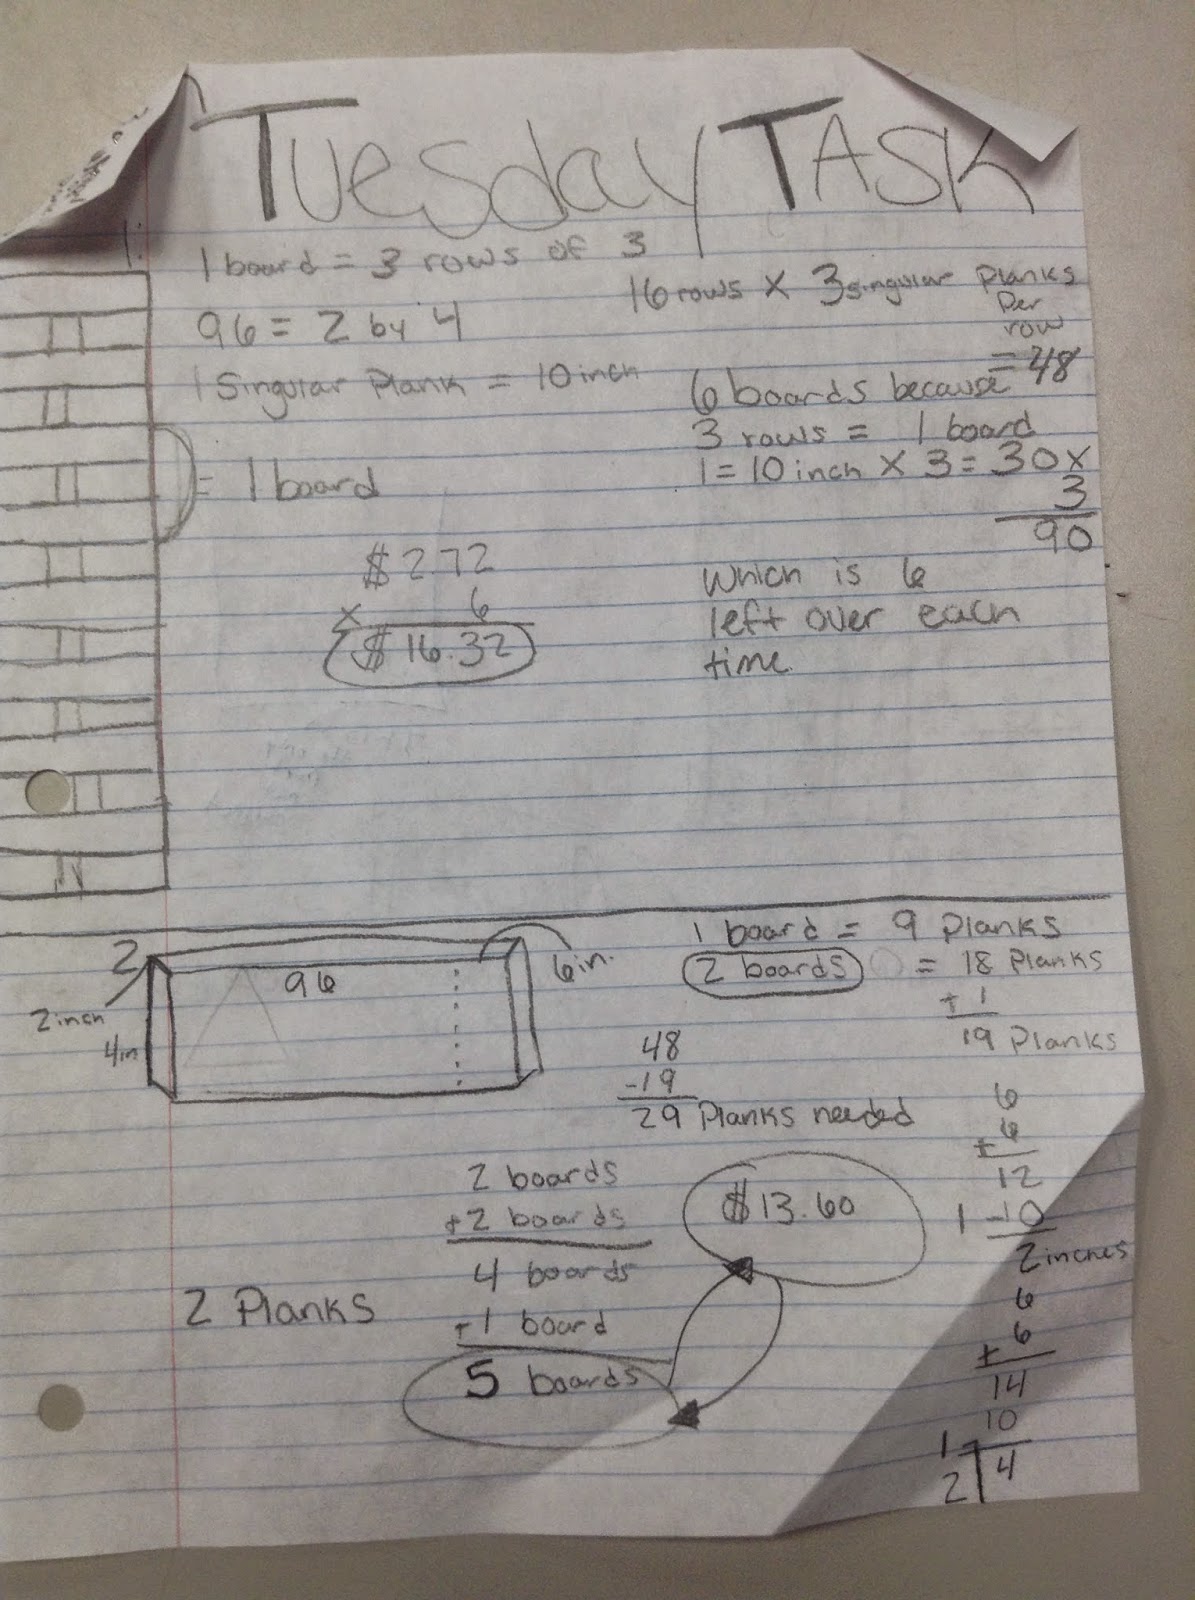 Tuesday TASK
1.
1 board = 3 rows of 3
96 = 2 by 4
1 Singular Plank = 10 inch
= 1 board
$2.72
x 6
$16.32
16 rows x 3 singular planks
Per
row
= 48
6 boards because
3 rows = 1 board
1 = 10 inch x 3 = 30 x
3
90
Which is 6
left over each
time.
2
96
6 in.
2 inch
4 in
1 board = 9 Planks
2 boards = 18 Planks
+ 1
19 Planks
48
-19
29 Planks needed
2 boards
+2 boards
4 boards
+1 board
5 boards
$13.60
2 Planks
6
+ 6
12
1 -10
2 inches
6
+ 6
14
10
1 -
2 4